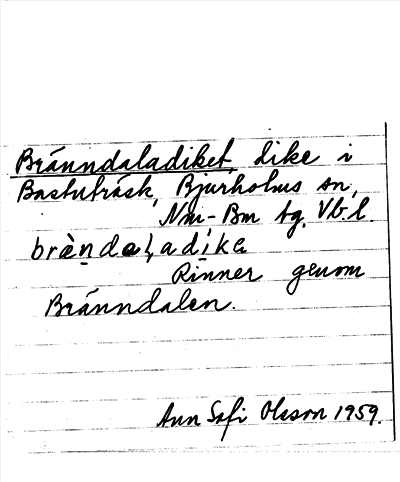 Bränndaladiket, dike i
Bastuträsk, Bjurholms sn,
Nm-Bm tg. Vb.l
brànda,ladíke
Rinner genom
Bränndalen.
Ann Sofi Olsson 1959.